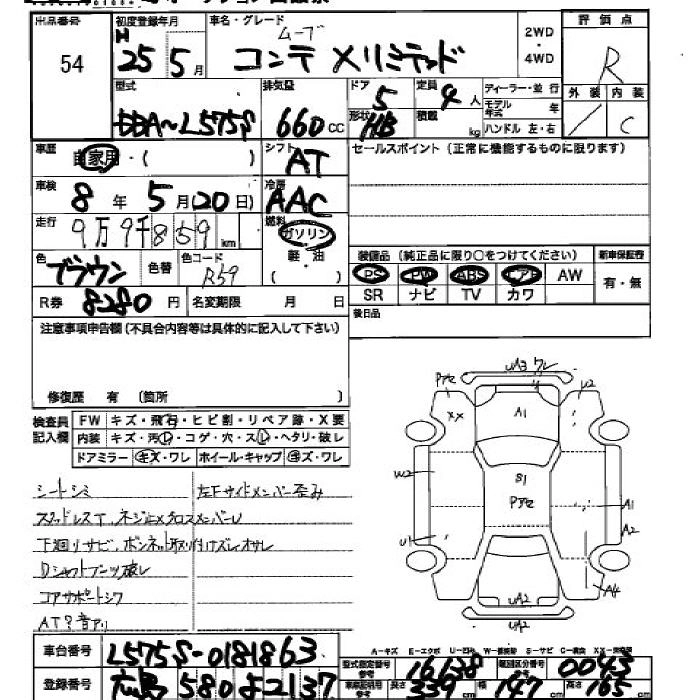 出品番号 初度登録年月 車名・グレード 2WD・4WD 評価点
54 H 25 5月 ムーブ コンテ Xリミテッド R
型式 排気量 ドア 定員 ディーラー・並行 外装 内装
DBA~L575S 660cc 5 4人 モデル年式 年 / C
形状 HB 積載 kg ハンドル 左・右
車歴 自家用・( ) シフト AT セールスポイント(正常に機能するものに限ります)
車検 8年5月(20日) 冷房 AAC
走行 9万9千859km 燃料 ガソリン・軽・油 ( )
色 ブラウン 色替 色コード R59
装備品(純正品に限り○をつけてください) 新車保証書
PS PW ABS エアB AW 有・無
SR ナビ TV カワ
R券 8280円 名変期限 月 日 後日品
注意事項申告欄(不具合内容等は具体的に記入して下さい)
修復歴 有 (箇所
検査員記入欄 FW キズ・飛石・ヒビ割・リペア跡・X要
内装 キズ・汚レ・コゲ・穴・スレ・ヘタリ・破レ
ドアミラー キズ・ワレ ホイール・キャップ キズ・ワレ
シートシミ 左Fサイドメンバー歪み
スタッドレスT、ネジ止メクロスメンバーU
下廻りサビ、ボンネット取り付けズレ、オサレ
Dシャフトブーツ破レ
コアサポートシワ
ATク音アリ
UA3 ワレ
Pアセ U2
XX A1
W2 S1
Pアセ A1
U1 A2
UA2 A4
A-キズ E-エクボ
車台番号 L575S-0181863 型式指定番号 参考 16638 類別区分番号 参考 0043
登録番号 広島 580 よ2137 長さ 339cm 幅 147cm 高さ 165cm